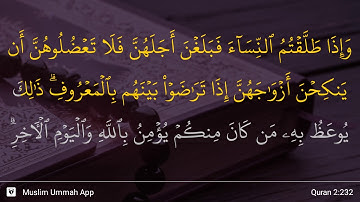 وَإِذَا طَلَّقْتُمُ ٱلنِّسَآءَ فَبَلَغْنَ أَجَلَهُنَّ فَلَا تَعْضُلُوهُنَّ أَن
يَنكِحْنَ أَزْوَٰجَهُنَّ إِذَا تَرَٰضَوْا۟ بَيْنَهُم بِٱلْمَعْرُوفِ ۗ ذَٰلِكَ
يُوعَظُ بِهِۦ مَن كَانَ مِنكُمْ يُؤْمِنُ بِٱللَّهِ وَٱلْيَوْمِ ٱلْـَٔاخِرِ ۗ
Muslim Ummah App
Quran 2:232